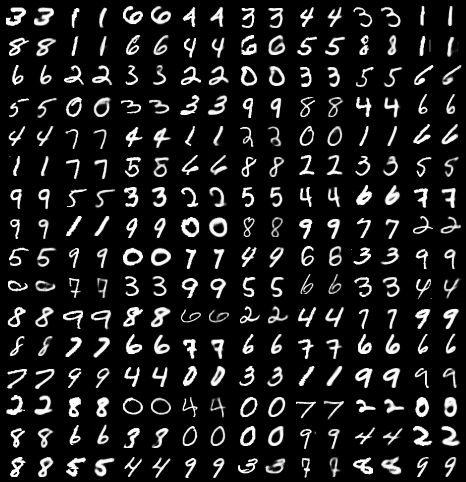 3 3 1 1 6 6 4 4 3 3 4 4 3 3 1 1
8 8 1 1 6 6 4 4 6 6 5 5 8 8 1 1
6 6 2 2 3 3 2 2 0 0 3 3 5 5 6 6
5 5 0 0 3 3 3 3 9 9 8 8 4 4 6 6
4 4 7 7 4 4 1 1 2 2 0 0 1 1 6 6
1 1 7 7 5 5 6 6 8 8 2 2 3 3 5 5
9 9 5 5 3 3 2 2 5 5 4 4 6 6 7 7
9 9 1 1 9 9 0 0 8 8 9 9 7 7 2 2
5 5 9 9 0 0 7 7 4 9 6 6 3 3 9 9
0 0 7 7 3 3 9 9 5 5 6 6 3 3 4 4
8 8 9 9 8 8 6 6 2 2 4 4 7 7 9 9
8 8 7 7 6 6 7 7 6 6 7 7 6 6 6 6
7 7 9 9 4 4 0 0 3 3 1 1 9 9 9 9
2 2 8 8 0 0 4 4 0 0 7 7 2 2 0 0
8 8 6 6 3 3 0 0 0 0 9 9 4 4 2 2
8 8 5 5 4 4 9 9 3 3 7 7 8 8 9 9